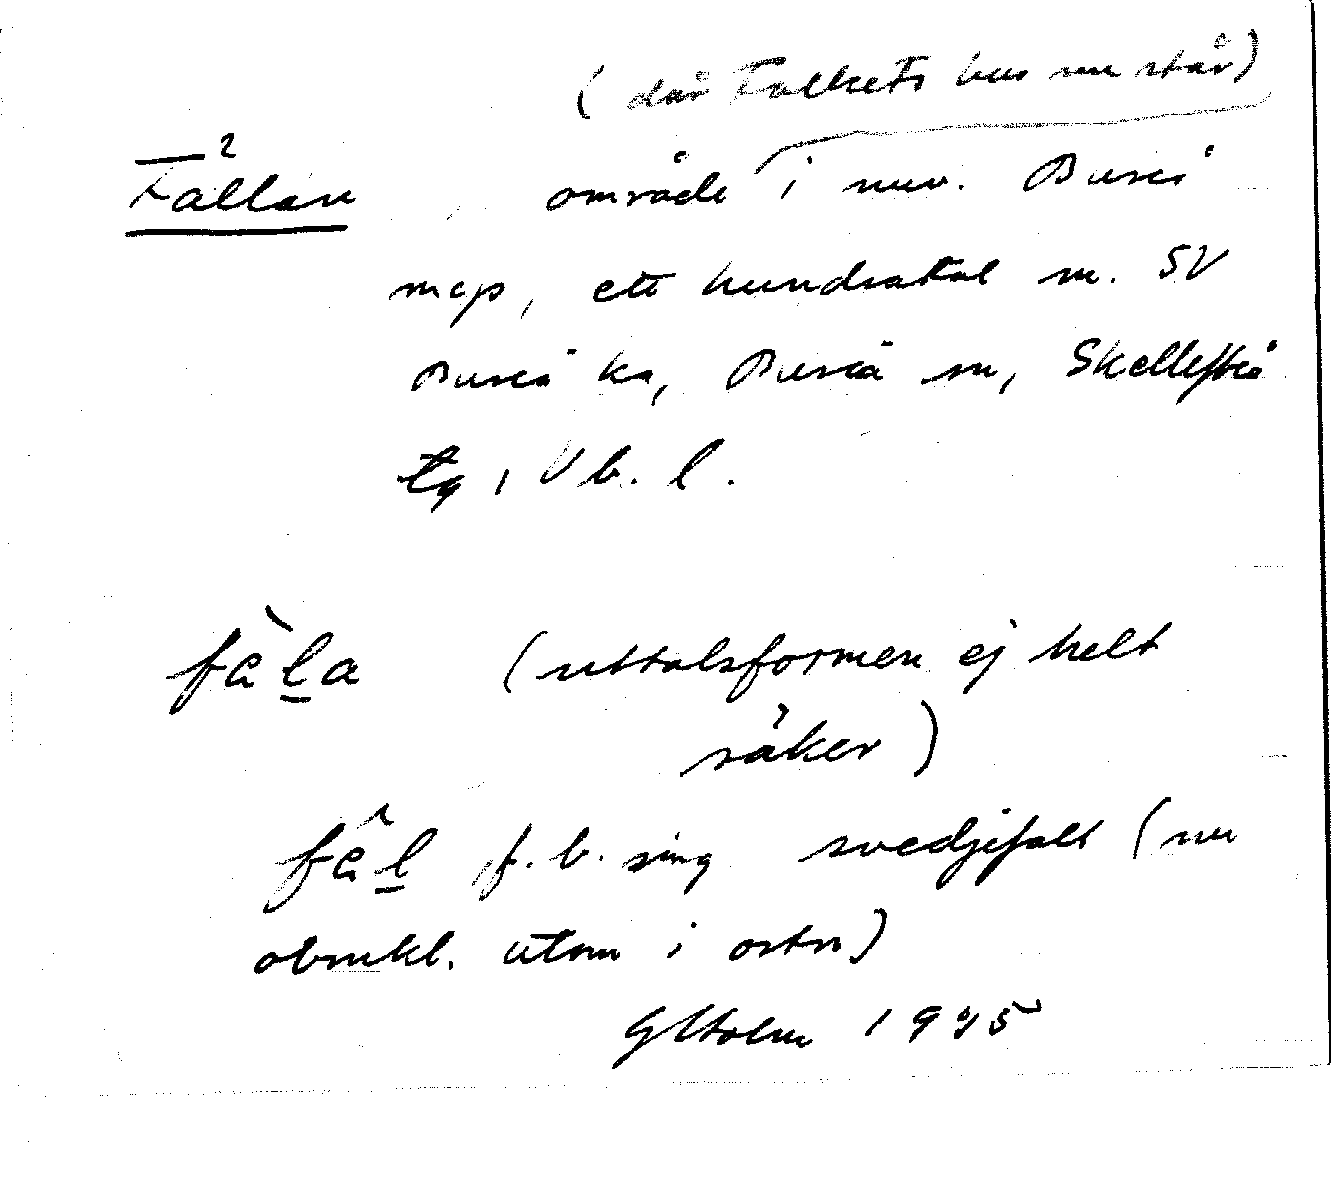 (där Folkets hus nu står)
Fällan 2, område i nuv. Bureå
mcp, ett hundratal m. SV
Bureå ka, Bureå sn, Skellefteå
tg, Vb. l.
fàl̲a (uttalsformen ej helt
säker)
fâl̲ f. b. sing svedjefalt (nu
obrukl. utom i ortn)
G Holm 1945